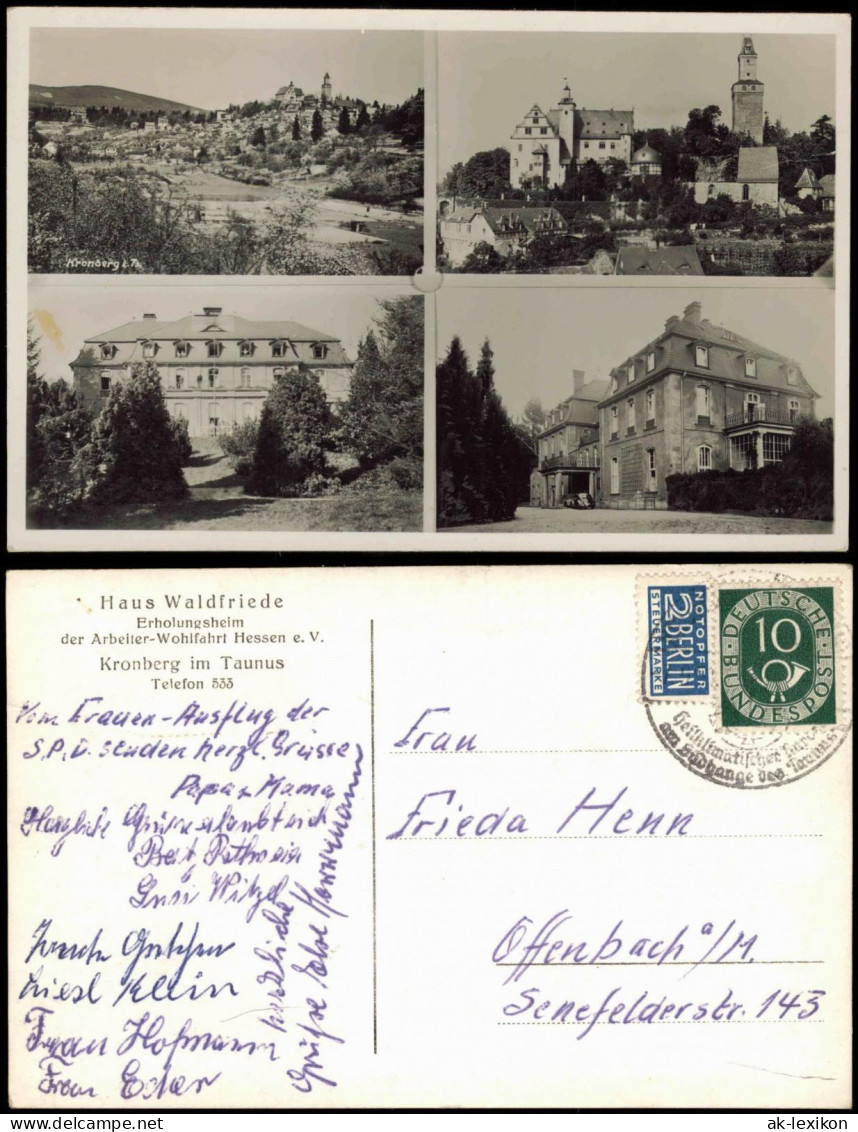 Kronberg i. Ts.
Haus Waldfriede
Erholungsheim
der Arbeiter-Wohlfahrt Hessen e. V.
Kronberg im Taunus
Telefon 533
Vom Frauen-Ausflug der
S.P.D. senden herzl. Grüsse
Papa + Mama
Herzliche Grüsse
Liesl Klein
Frau Hofmann
Frau Ecker
herzliche
Grüße
NOTOPFER
2 BERLIN
STEUERMARKE
DEUTSCHE
10
BUNDESPOST
Heilklimatischer
am Südhange des Taunus
Frau
Frieda Henn
Offenbach a/M.
Senefelderstr. 143
www.ansichtskarten-lexikon.de
ak-lexikon